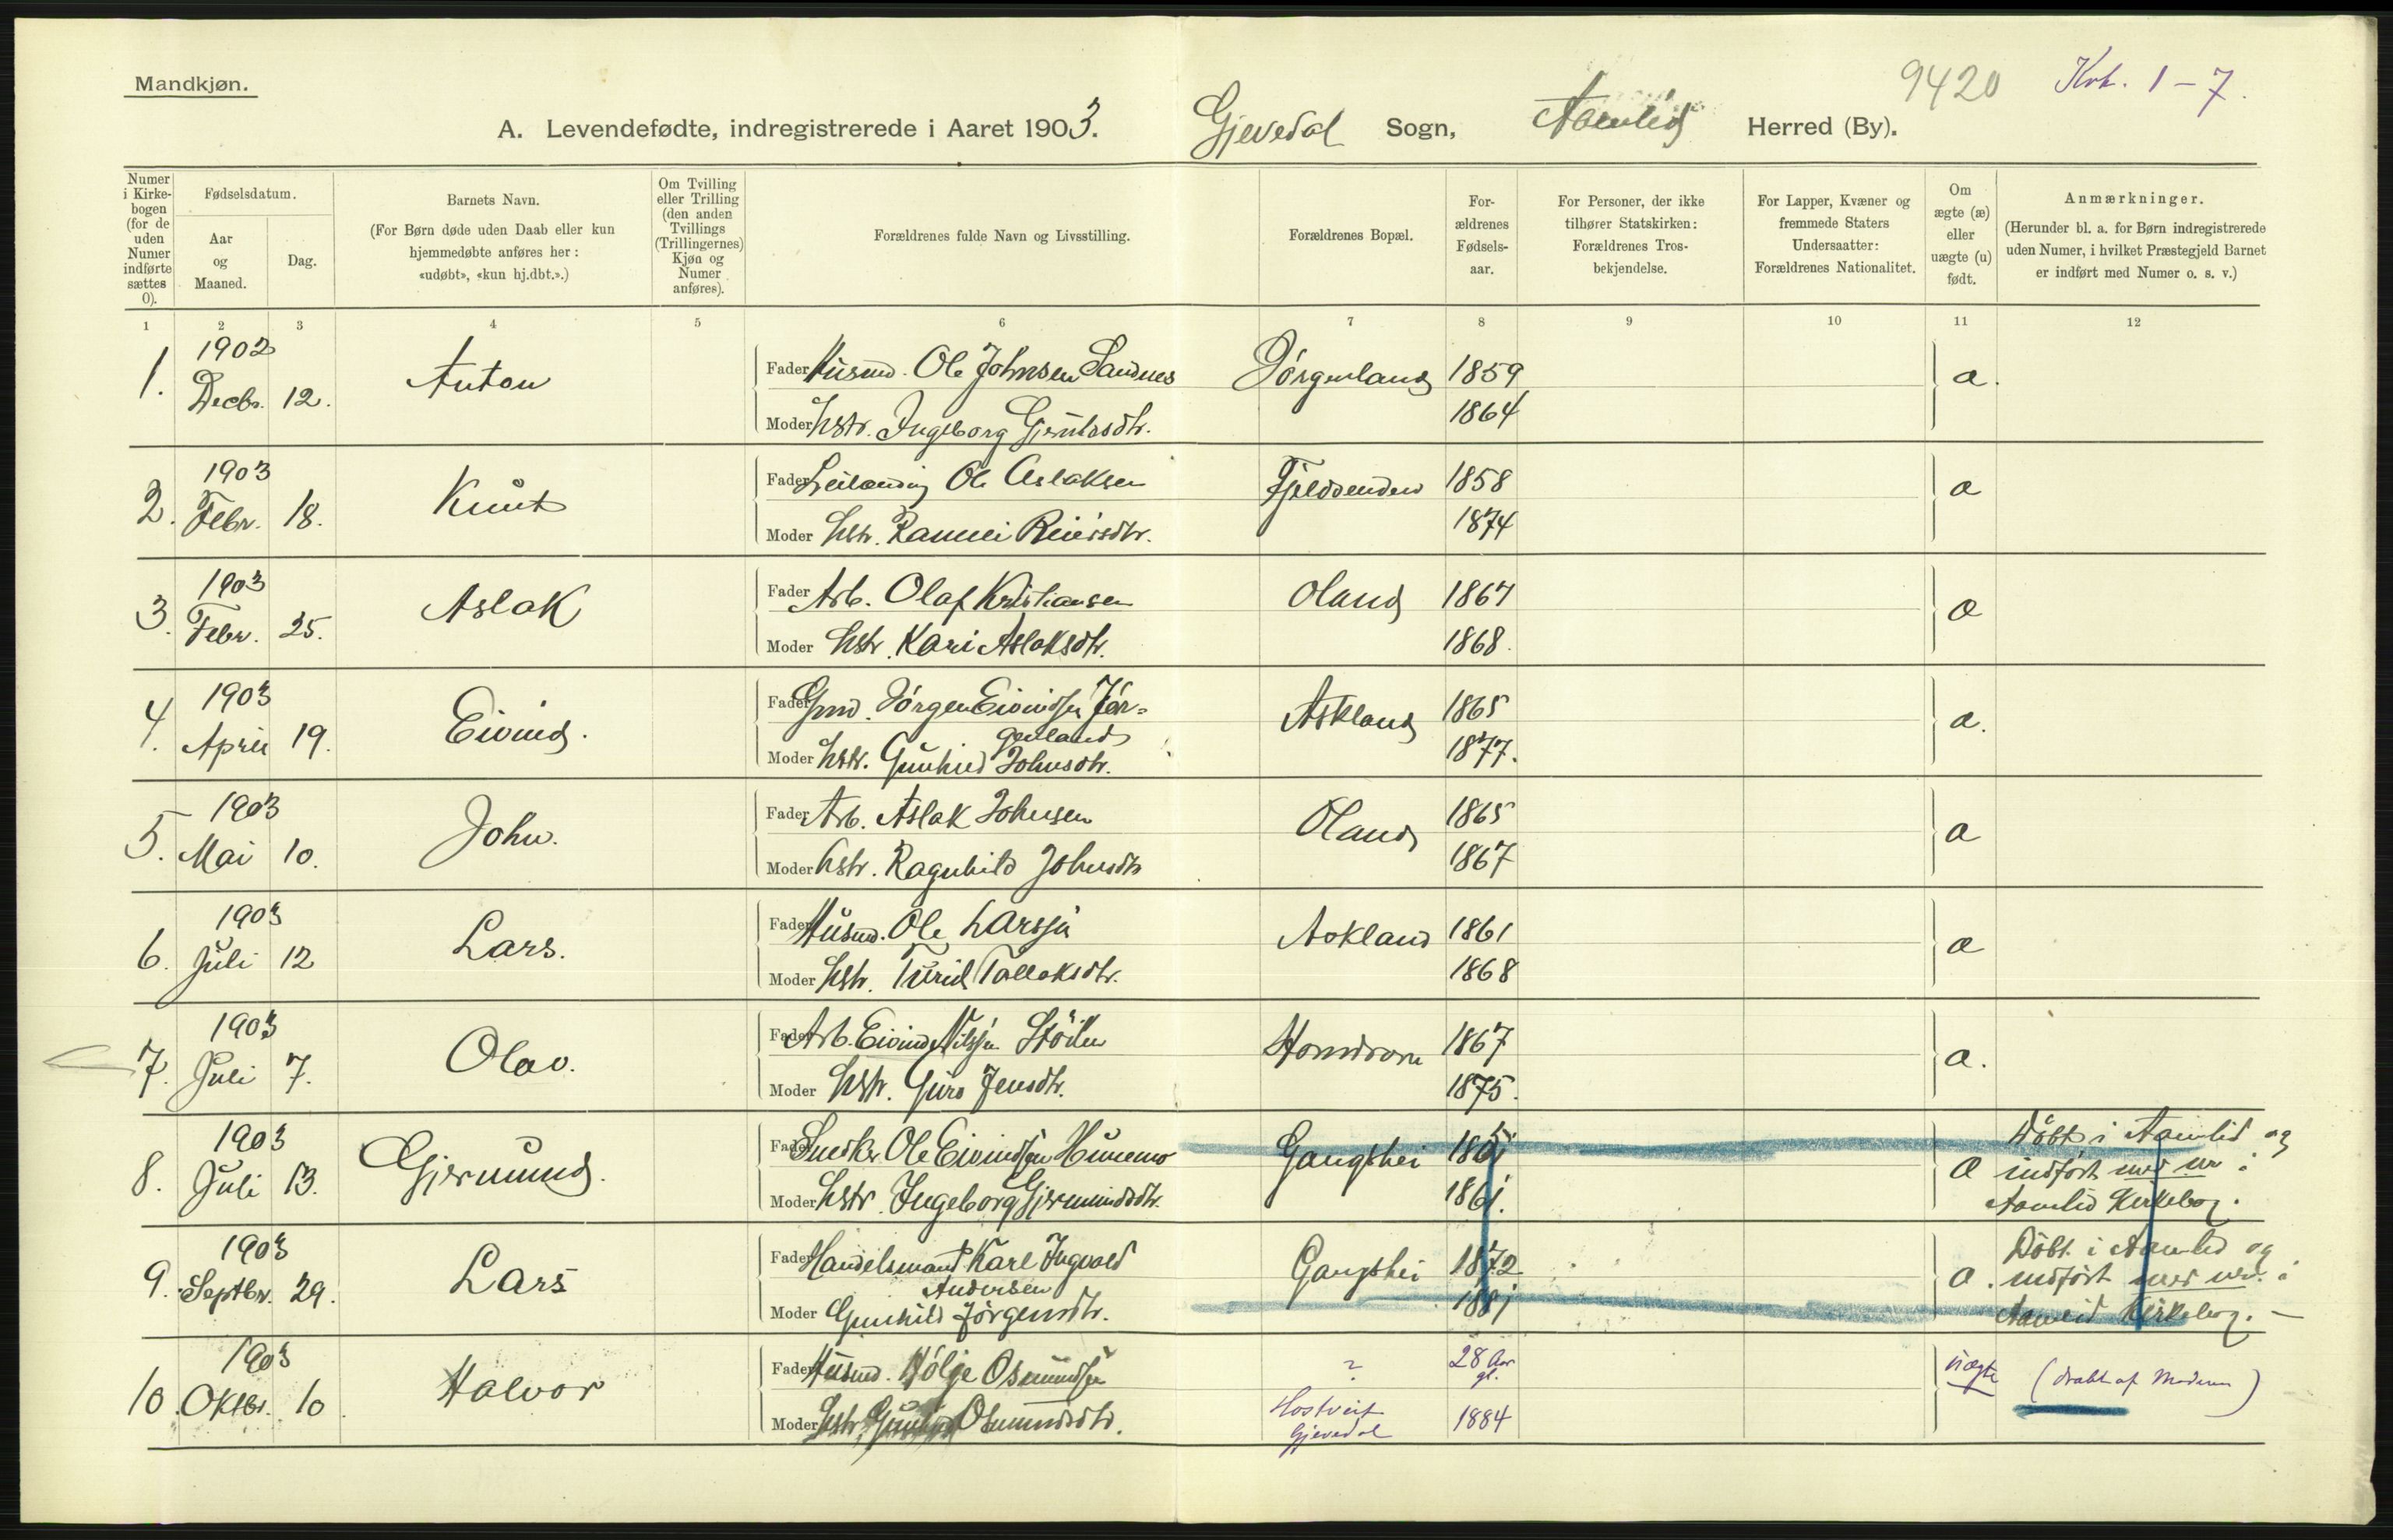 Mandkjøn.
9420 Krk. 1-7.
A. Levendefødte, indregistrerede i Aaret 1903. Gjevedal Sogn, Aamlid Herred (By).
Numer i Kirkebogen (for de uden Numer indførte sættes 0).
Fødselsdatum.
Aar og Maaned.
Dag.
Barnets Navn.
(For Børn døde uden Daab eller kun hjemmedøbte anføres her: «udøbt», «kun hj.dbt.».)
Om Tvilling eller Trilling (den anden Tvillings (Trillingernes) Kjøn og Numer anføres).
Forældrenes fulde Navn og Livsstilling.
Forældrenes Bopæl.
For-ældrenes Fødsels-aar.
For Personer, der ikke tilhører Statskirken: Forældrenes Tros-bekjendelse.
For Lapper, Kvæner og fremmede Staters Undersaatter: Forældrenes Nationalitet.
Om ægte (æ) eller uægte (u) født.
Anmærkninger.
(Herunder bl. a. for Børn indregistrerede uden Numer, i hvilket Præstegjeld Barnet er indført med Numer o. s. v.)
1 2 3 4 5 6 7 8 9 10 11 12
1. 1902 Decbr. 12. Anton Fader Husmd. Ole Johnsen Sandnes Jørgenland 1859 æ.
Moder Hstr. Ingeborg 1864
2. 1903 Febr. 18. Knut Fader Leilænding Ole Aslaksen Fjeldsenden 1858 æ
Moder Hstr. Rannei Reiersdtr. 1874
3. 1903 Febr. 25. Aslak Fader Arb. Olaf Kristiansen Oland 1867 æ
Moder Hstr. Kari Aslaksdtr. 1868.
4. 1903 April 19. Eivind. Fader Gmd. Jørgen Eivindsen Jør=genland Askland 1865 æ.
Moder Hstr. Gunhild Johnsdtr. 1877.
5. 1903 Mai 10. John. Fader Arb. Aslak Johnsen Oland 1865 æ
Moder Hstr. Ragnhild Johnsdtr 1867
6. 1903 Juli 12 Lars. Fader Husmd. Ole Larssen Askland 1861 æ
Moder Hstr. Turid Tallaksdtr. 1868
7. 1903 Juli 7. Olav. Fader Arb. Eivind Nilssen Støilen Homdrom 1867 æ.
Moder Hstr. Guro Jensdtr. 1875.
8. 1903 Juli 13. Gjermund. Fader Snedker Ole Eivindsen Hunemo Gangshei æ Døbt i Aamlid og indført med nr i Aamlid Kirkebog.
Moder Hstr. Ingeborg Gjermundsdtr. 1861.
9. 1903 Septbr. 29. Lars Fader Handelsmand Karl Ingvald Andersen Gangshei 1872 æ. Døbt i Aamlid og indført med nr. i Aamlid Kirkebog.
Moder Gunhild Jørgensdtr. 1881
10. 1903 Oktbr. 10 Halvor Fader Husmd. Hølje Osmundsen ? 28 Aar gl. uægte (drabt af Moderen)
Moder Hstr. Gunhild Osmundsdtr. Hostveit Gjevedal 1884